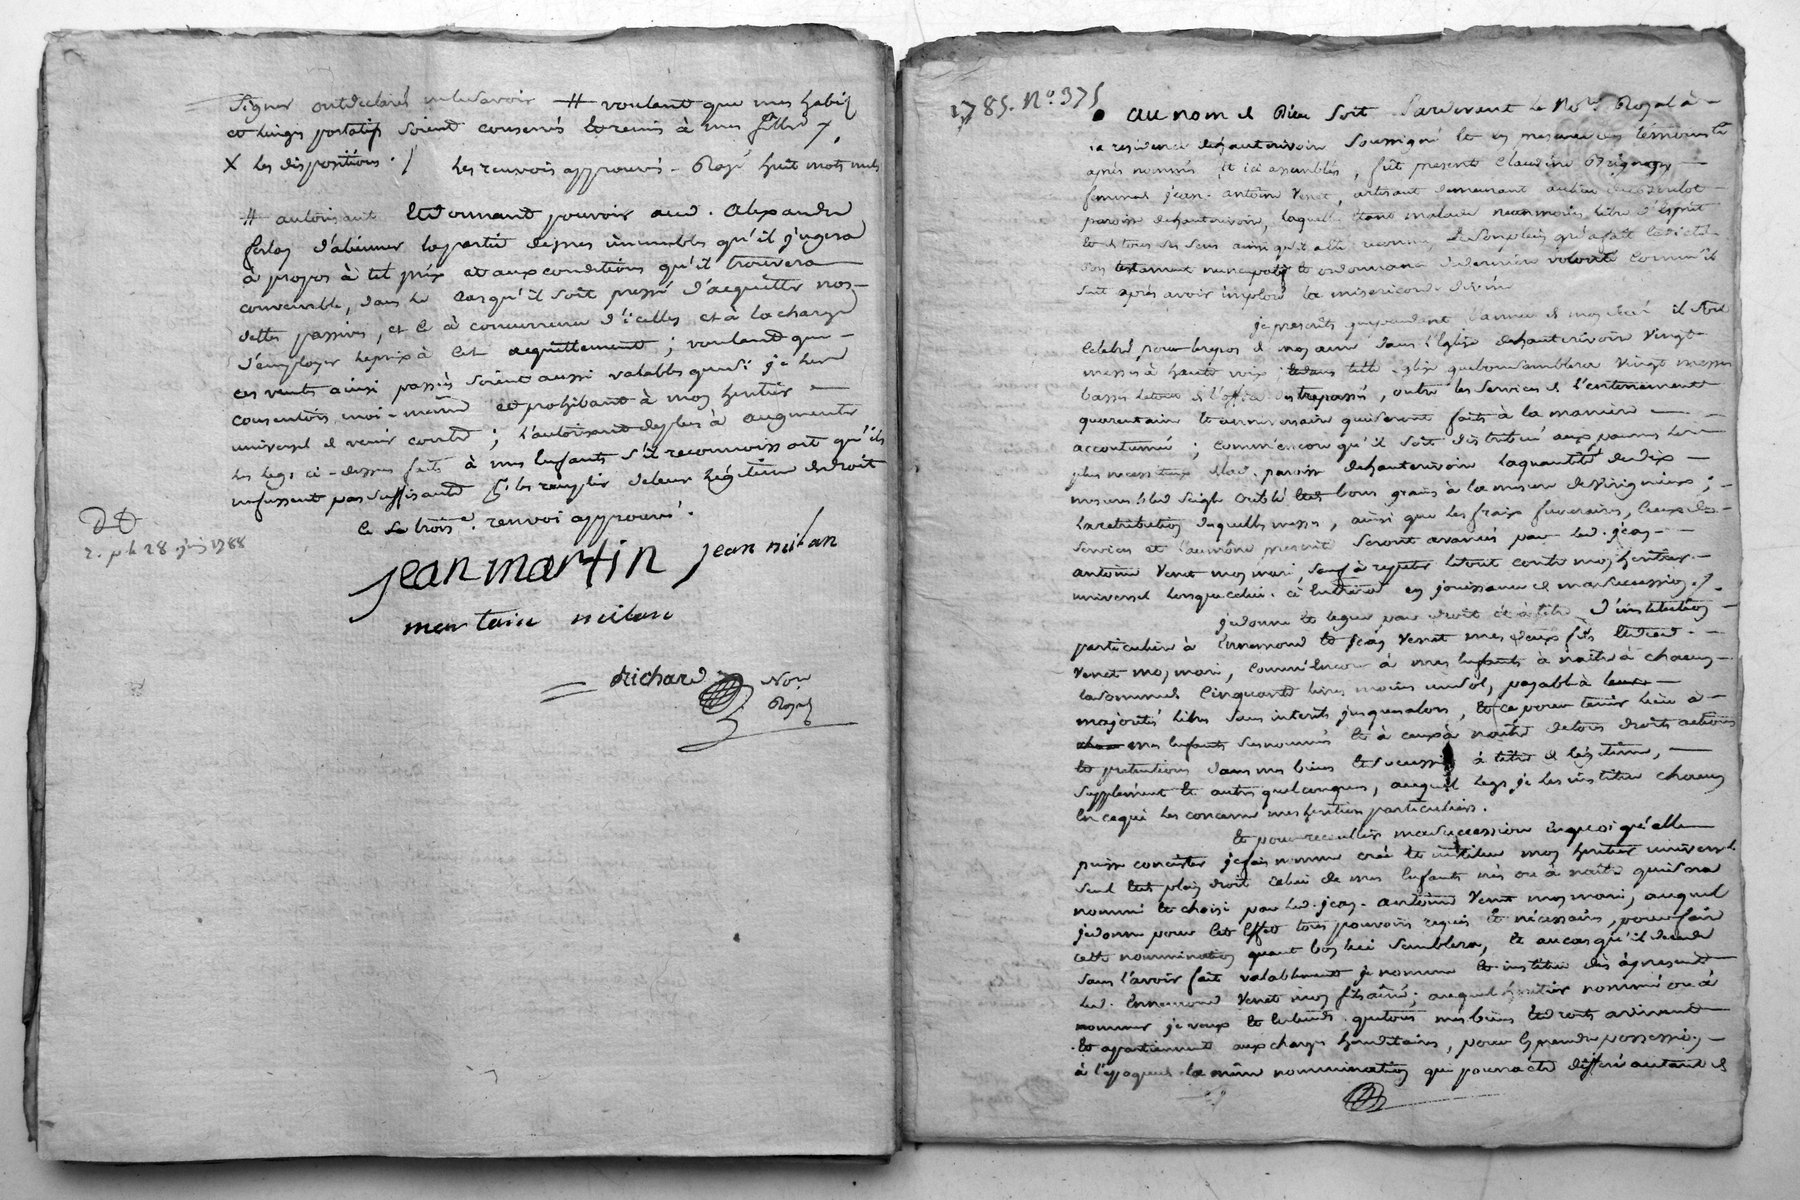 signer ont déclaré ne le savoir # voulant que mes habits
et linges portatifs soient conservés et remis à mes filles x,
x les dispositions. / les renvois approuvés - Rayé huit mots nuls
# autorisant et donnant pouvoir aud. alexandre
d'aliéner la partie de mes immeubles qu'il jugera
à propos à tel prix et aux conditions qu'il trouvera
convenable, dans le cas qu'il soit pressé d'acquitter nos
dettes passives, et ce à concurrence d'icelles et à la charge
d'employer le prix à cet acquittement ; voulant que
ces ventes ainsi passées soient aussi valables que si je les
consentois moi-même et prohibant à mon héritier
universel de venir contre ; l'autorisant de plus à augmenter
les legs ci-dessus faits à mes enfants s'il reconnoissoit qu'ils
ne fussent pas suffisants pr. les remplir de leur légitime de droit
ce troise. renvoi approuvé.
28 juin 1788
jean martin jean milan
martain milan
Richard Nore
Royal
1785. N° 375
au nom de Dieu soit pardevant le Nore. Royal à
la residence d'hauterivoire soussigné et en presence des témoins cy
après nommés et ici assemblés, fût presente Claudine
femme de jean-antoine Venet, artisant demeurant au lieu
paroisse d'hauterivoire, laquelle étant malade néanmoins libre d'esprit
et de tous ses sens ainsi qu'il a été reconnu, de son plein gré a fait
son testament nuncupatif et ordonnance de dernière volonté comme s'il
suit après avoir imploré la misericorde divine
je prescrits que pendant l'année de mon décès il soit
celebré pour le repos de mon ame dans l'Eglise d'hauterivoire vingt
messes à haute voix, et dans telle eglise que bon semblera vingt messes
basses de l'office des trepassés, outre les services de l'enterrement
quarantain et anniversaire qui seront faits à la manière
accoutumée ; comm'encore qu'il soit distribué aux pauvres les
plus necessiteux de lad. paroisse d'hauterivoire la quantité de dix
mesures bled seigle bons grains à la mesure de Virigneux ;
la retribution desquelles messes, ainsi que les frais funeraires, ceux des
services et l'aumône prescrite seront avancés par led. jean
antoine Venet mon mari, sauf à repeter le tout contre mon héritier
universel lorsque celui-ci entrera en jouissance de ma succession.
je donne et legue par droit et à titre d'institution
particulière à Ennemond et jean Venet mes deux fils et dud.
Venet mon mari, comm'encore à mes enfants à naître à chacun
la somme de cinquante livres moins un sol, payable à leur
majorité libre sans interêts jusques alors, et ce pour tenir lieu à
mes enfants susnommés et à ceux à naître de tous droits actions
et pretentions dans mes biens et succession à titre de légitime,
supplément et autre quelconques, auquel legs je les institue chacun
en ce qui les concerne mes héritiers particuliers.
Et pour recueillir ma succession en quoi qu'elle
puisse concister je fais nomme crée et institue mon héritier universel
seul et de plein droit celui de mes enfants nés ou à naître qui sera
nommé et choisi par led. jean-antoine Venet mon mari, auquel
je donne pour cet effet tous pouvoirs requis et nécessaires, pour faire
cette nommination quant bon lui semblera, et au cas qu'il decede
sans l'avoir fait valablement je nomme et institue dès à present
led. Ennemond Venet mon fils aîné ; auquel héritier nommé ou à
nommer je veux et entends que tous mes biens et droits arrivent
et appartiennent aux charges héréditaires, pour en prendre possession
à l'epoque de la même nommination qui pourra être différé autant de